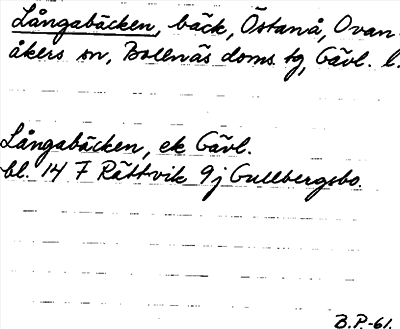 Långabäcken, bäck, Östanå, Ovan-
åkers sn, Bollnäs doms. tg, Gävl. l.
Långabäcken, ek Gävl.
bl. 14 F Rättvik 9j Gullbergsbo.
B.P.-61.